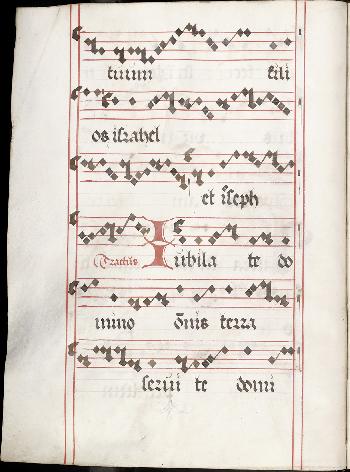 tuum fili
os israhel
et ioseph
Tractus Iubila te do
mino om̄is terra
serui te domi